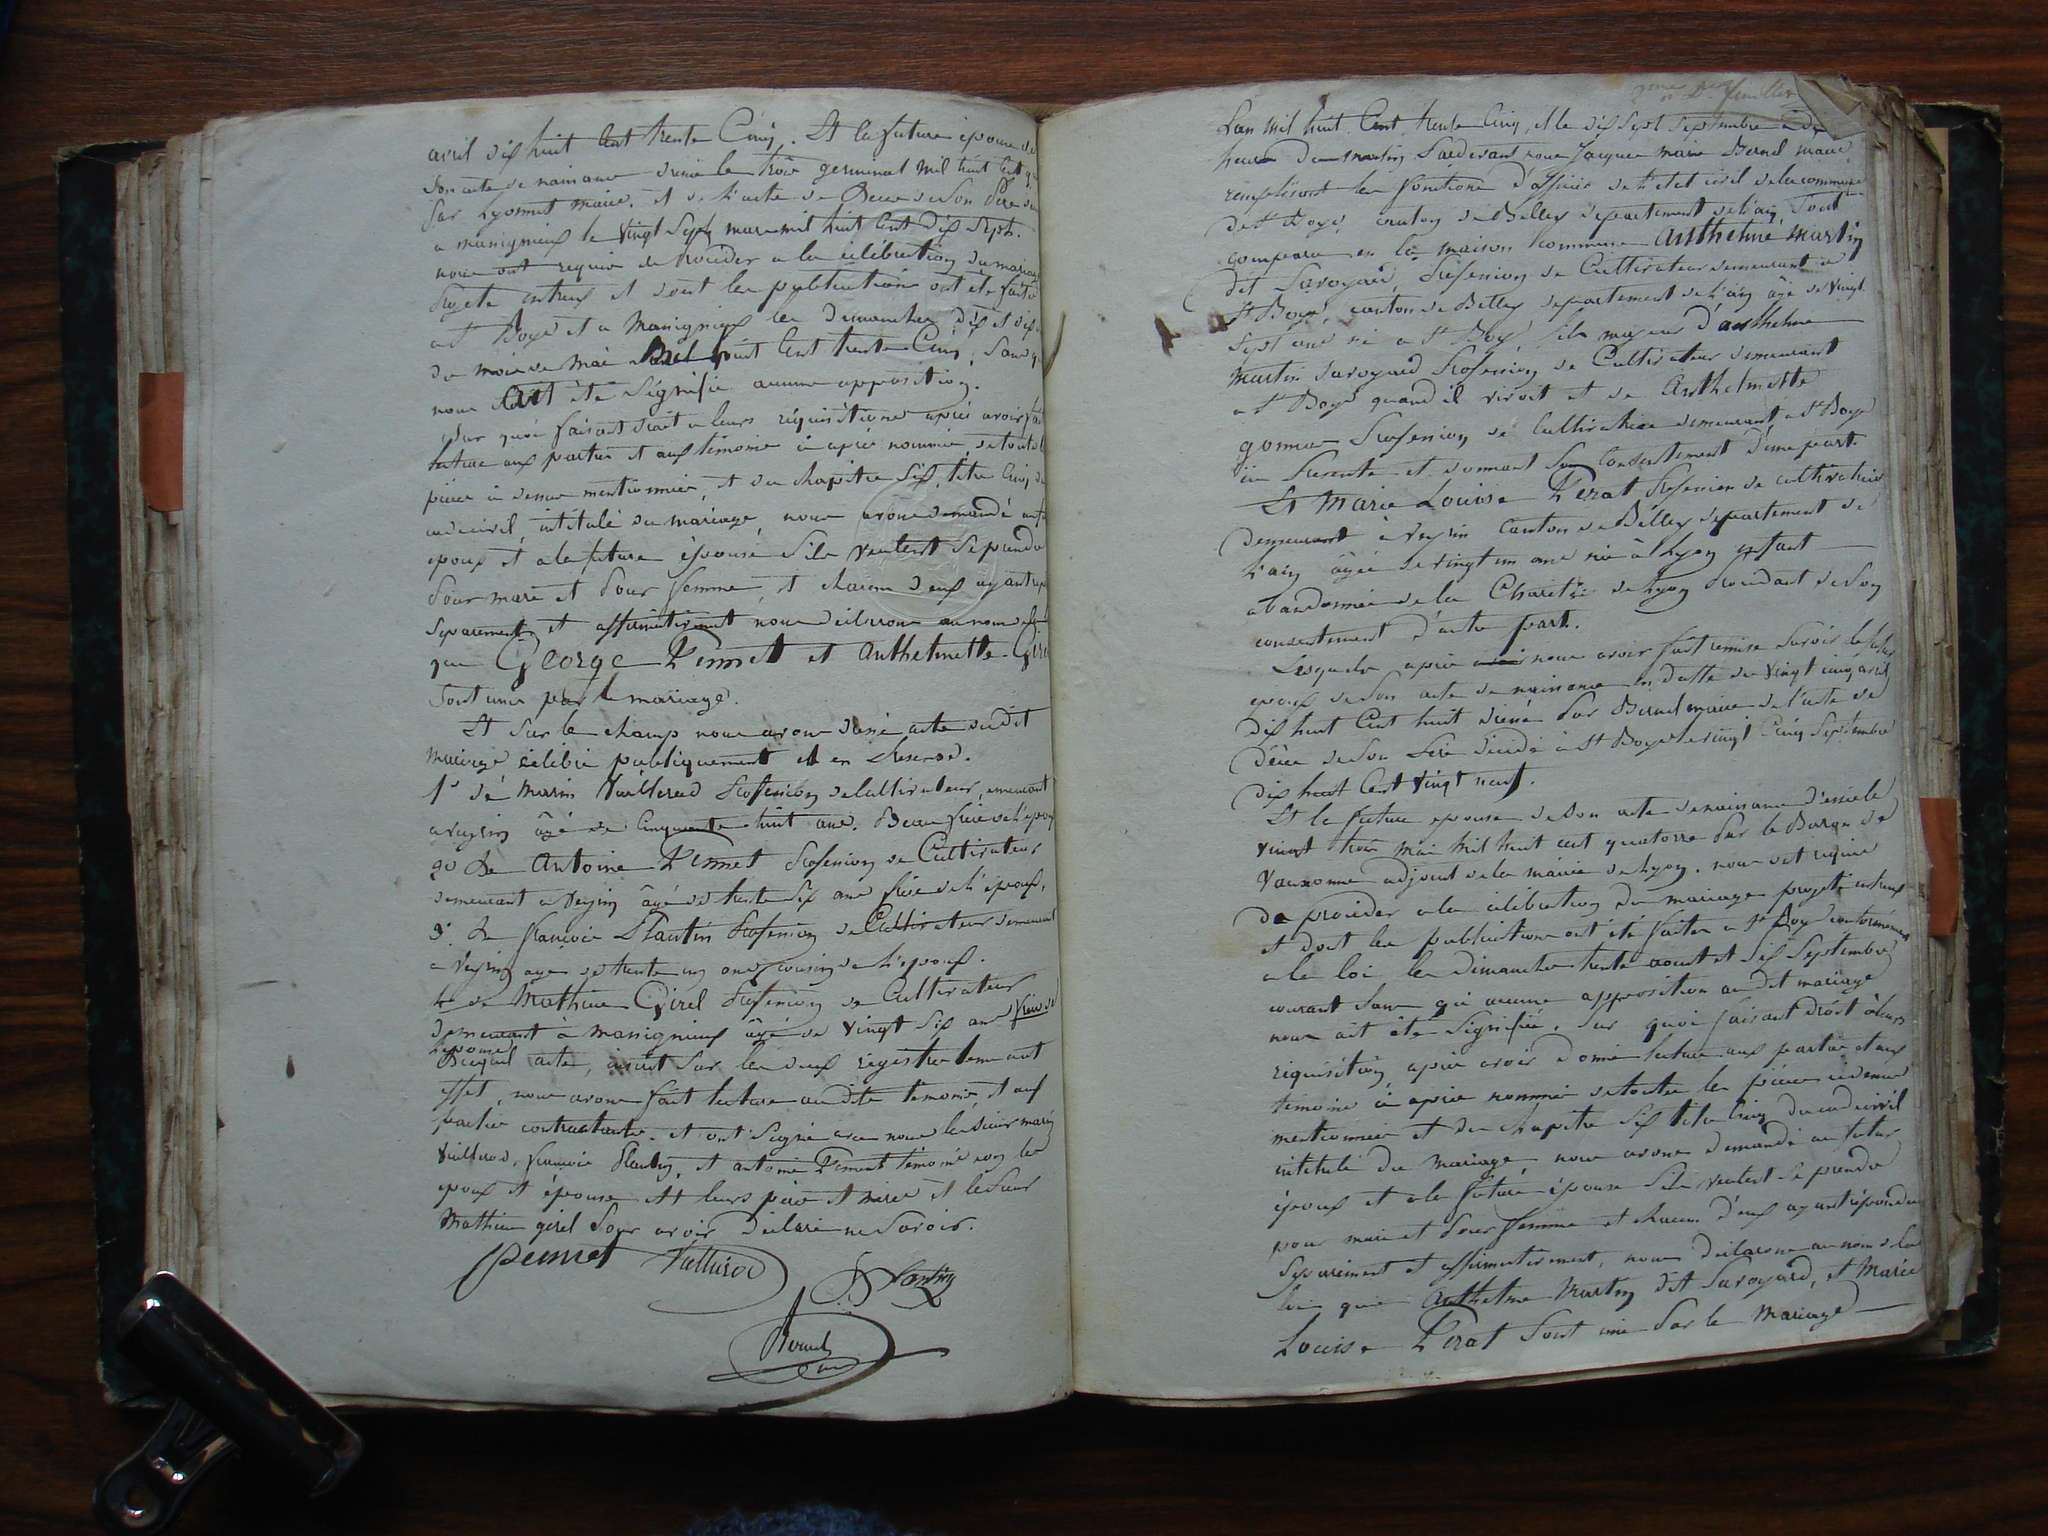 avril dix huit Cent trente Cinq. Et la future épouse de
Son acte de naissance le trois germinal mil huit Cent
par Lyonnet maire. et de l'acte de Deces de Son Père
a massignieux le vingt Sept mars mil huit Cent dix Sept.
nous ont requis de Proceder a la célébration du mariage
projeté entreux et dont les publications ont été faites
a St Boys et a Massignieux les Dimanches dix et dix
du mois de Mai Mil huit Cent trente Cinq, Sans q
nous ait été Signifié aucune opposition.
Sur quoi faisant droit a leurs réquisitions après avoir
lecture aux parties et aux témoins ci après nommés, de toutes
pièces ci dessus mentionnées, et du chapitre Six, titre Cinq du
code civil, intitulé du mariage, nous avons demandé au
epoux et a la future épouse S'ils veulent Se prendre
Pour mari et Pour femme, et chacun d'eux ayant
Séparément et affirmativement nous déclarons au nom
que George Pennet et Anthelmette
Sont unis par le mariage.
Et Sur le champ nous avons acte dudit
mariage célébré publiquement et en Présence.
1° de Marin Profession de Cultivateur, demeurant
a veyrin âgé de Cinquante huit ans. Beau frère de l'epoux
2° De Antoine Pennet Profession de Cultivateur
demeurant a Veyrin âgé de trente Six ans frère de l'époux,
3°. De françois Plantin Profession de Cultivateur demeurant
a Veyrin age de trente ans cousin de l'epoux.
4 de Mathieu Girel Profession de Cultivateur
demeurant à massignieux âgé de vingt Six ans frère de
L'epouse
Duquel acte, inscrit Sur les deux registres tenus a cet
effet, nous avons fait lecture audits témoins, et aux
parties contractantes. et ont Signé avec nous les Sieurs marin
françois Plantin, et antoine Pennet témoins non les
epoux et épouse et leurs père et mère et le Sieur
Mathieu girel Pour avoir Déclaré ne Savoir.
Pennet
Plantin
L'an Mil huit Cent trente Cinq, et le dix Sept Septembre à
heures Du matin Pardevant nous Jacques marie maire
remplissant les fonctions d'officier de l'état civil de la commune
de St Boys, canton de Belley departement de l'ain, Sont
comparu en la maison Commune Anthelme Martin
dit Savoyard, Profession de Cultivateur demeurant a
St Boys, canton de Belley departement de l'ain âgé de vingt
Sept ans né a St Boys, fils majeur d'anthelme
Martin Savoyard Profession de Cultivateur demeurant
a St Boys quand il vivoit et de Anthelmette
Profession de Cultivatrice demeurant a St Boys
ici Presente et donnant Son Consentement D'une part.
Et Marie Louise Perat Profession de cultivatrice
demeurant à veyrin Canton de Belley departement de
l'ain âgée de vingt un ans née à Lyon enfant
abandonnée de la Charité de Lyon de Son
consentement D'autre part.
Lesquels après nous avoir fait remise Savoir le futur
epoux de Son acte de naissance en datte du vingt Cinq avril
dix huit Cent huit Par maire de l'acte de
Décès de Son Père décédé à St Boys le vingt Cinq Septembre
dix huit Cent vingt neuf.
Et la future epouse de Son acte de naissance le
vingt trois mai mil huit cent quatorze Par le Baron de
Vauxonne adjoint de la mairie de Lyon. nous ont requis
de proceder a la célébration du mariage projeté entreux
et dont les publications ont été faites a St Boys conformément
a la loi les dimanches trente août et Six Septembre
courant Sans qu'aucune opposition audit mariage
nous ait été Signifiée. Sur quoi faisant droit à leurs
réquisition après avoir donné lecture aux parties et aux
témoins ci après nommés de toutes les pièces ci dessus
mentionnées et du chapitre Six titre Cinq du code civil
intitulé du mariage, nous avons demandé au futur
époux et a la future épouse S'ils veulent Se prendre
pour mari et Pour femme et chacun d'eux ayant répondu
Séparément et affirmativement, nous Déclarons au nom de la
loi que Anthelme Martin dit Savoyard, et Marie
Louise Perat Sont unis Par le Mariage